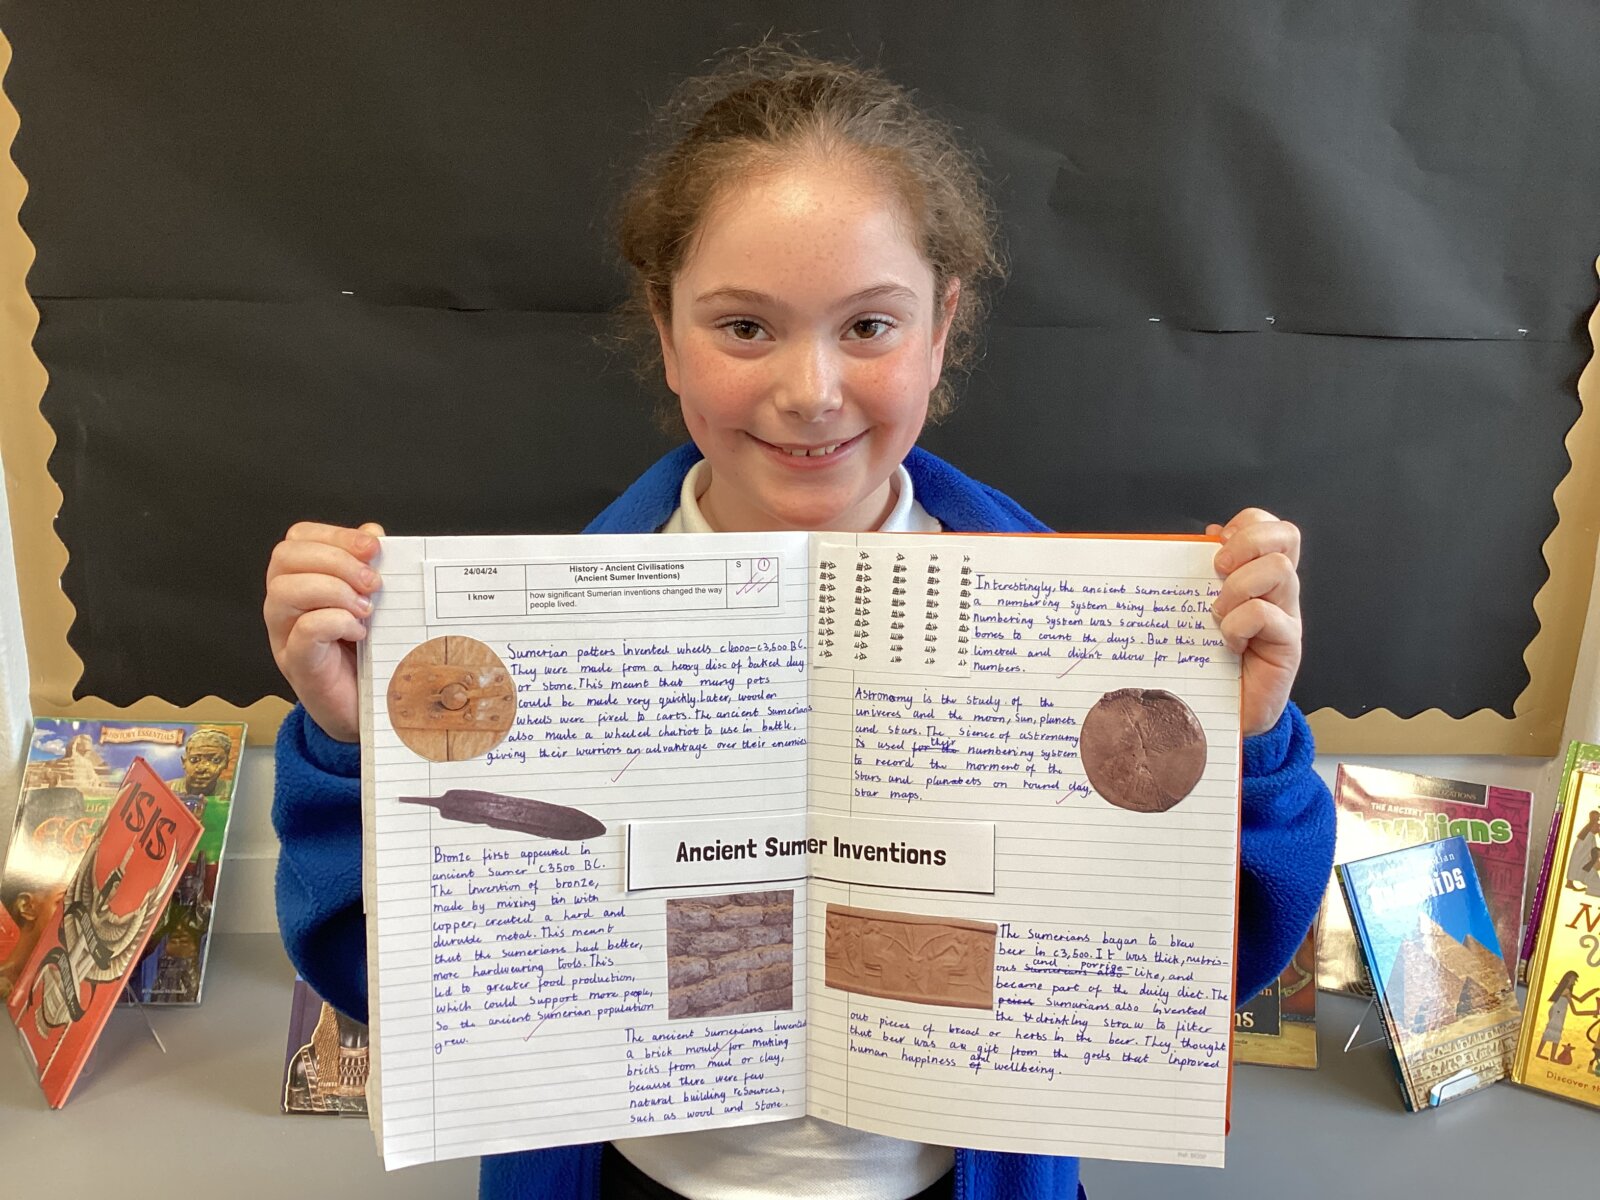 24/04/24
History - Ancient Civilisations
(Ancient Sumer Inventions)
S
I know
how significant Sumerian inventions changed the way
people lived.
Sumerian potters invented wheels c4000-c3,500 BC.
They were made from a heavy disc of baked clay
or stone. This meant that many pots
could be made very quickly. Later, wooden
wheels were fixed to carts. The ancient Sumerians
also made a wheeled chariot to use in battle,
giving their warriors an advantage over their enemies
Bronze first appeared in
ancient Sumer c3500 BC.
The invention of bronze,
made by mixing tin with
copper, created a hard and
durable metal. This meant
that the sumerians had better,
more hardwearing tools. This
led to greater food production,
which could support more people,
so the ancient sumerian population
grew.
Ancient Sumer Inventions
The ancient Sumerians invented
a brick mould for making
bricks from mud or clay,
because there were few
natural building resources,
such as wood and stone.
Interestingly, the ancient sumerians
a numbering system using base 60.
numbering system was scrached with
bones to count the days. But this was
limeted and didn't allow for larege
numbers.
Astronomy is the study of the
univeres and the moon, sun, planets
and stars. The sience of astronomy
is used their numbering system
to record the morment of the
stars and on round clay,
star maps.
The Sumerians began to brew
beer in c3,500. It was thick, nutris-
ous sumerians also and porrige-like, and
became part of the daily diet. The
Sumarians also invented
the drinking straw to filter
out pieces of bread or herbs in the beer. They thought
that beer was an gift from the gods that inproved
human happiness and wellbeing.
HISTORY ESSENTIALS
Life
ISIS
THE ANCIENT
Egyptians
Discover